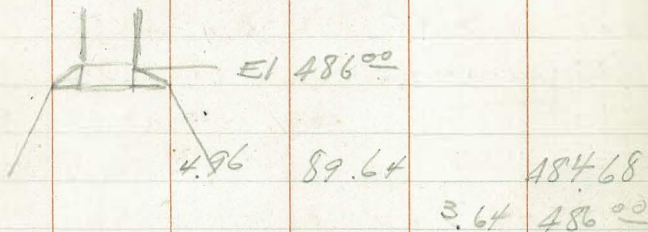 El 486⁰⁰
4.96 89.64 484.68
3.64 486⁰⁰